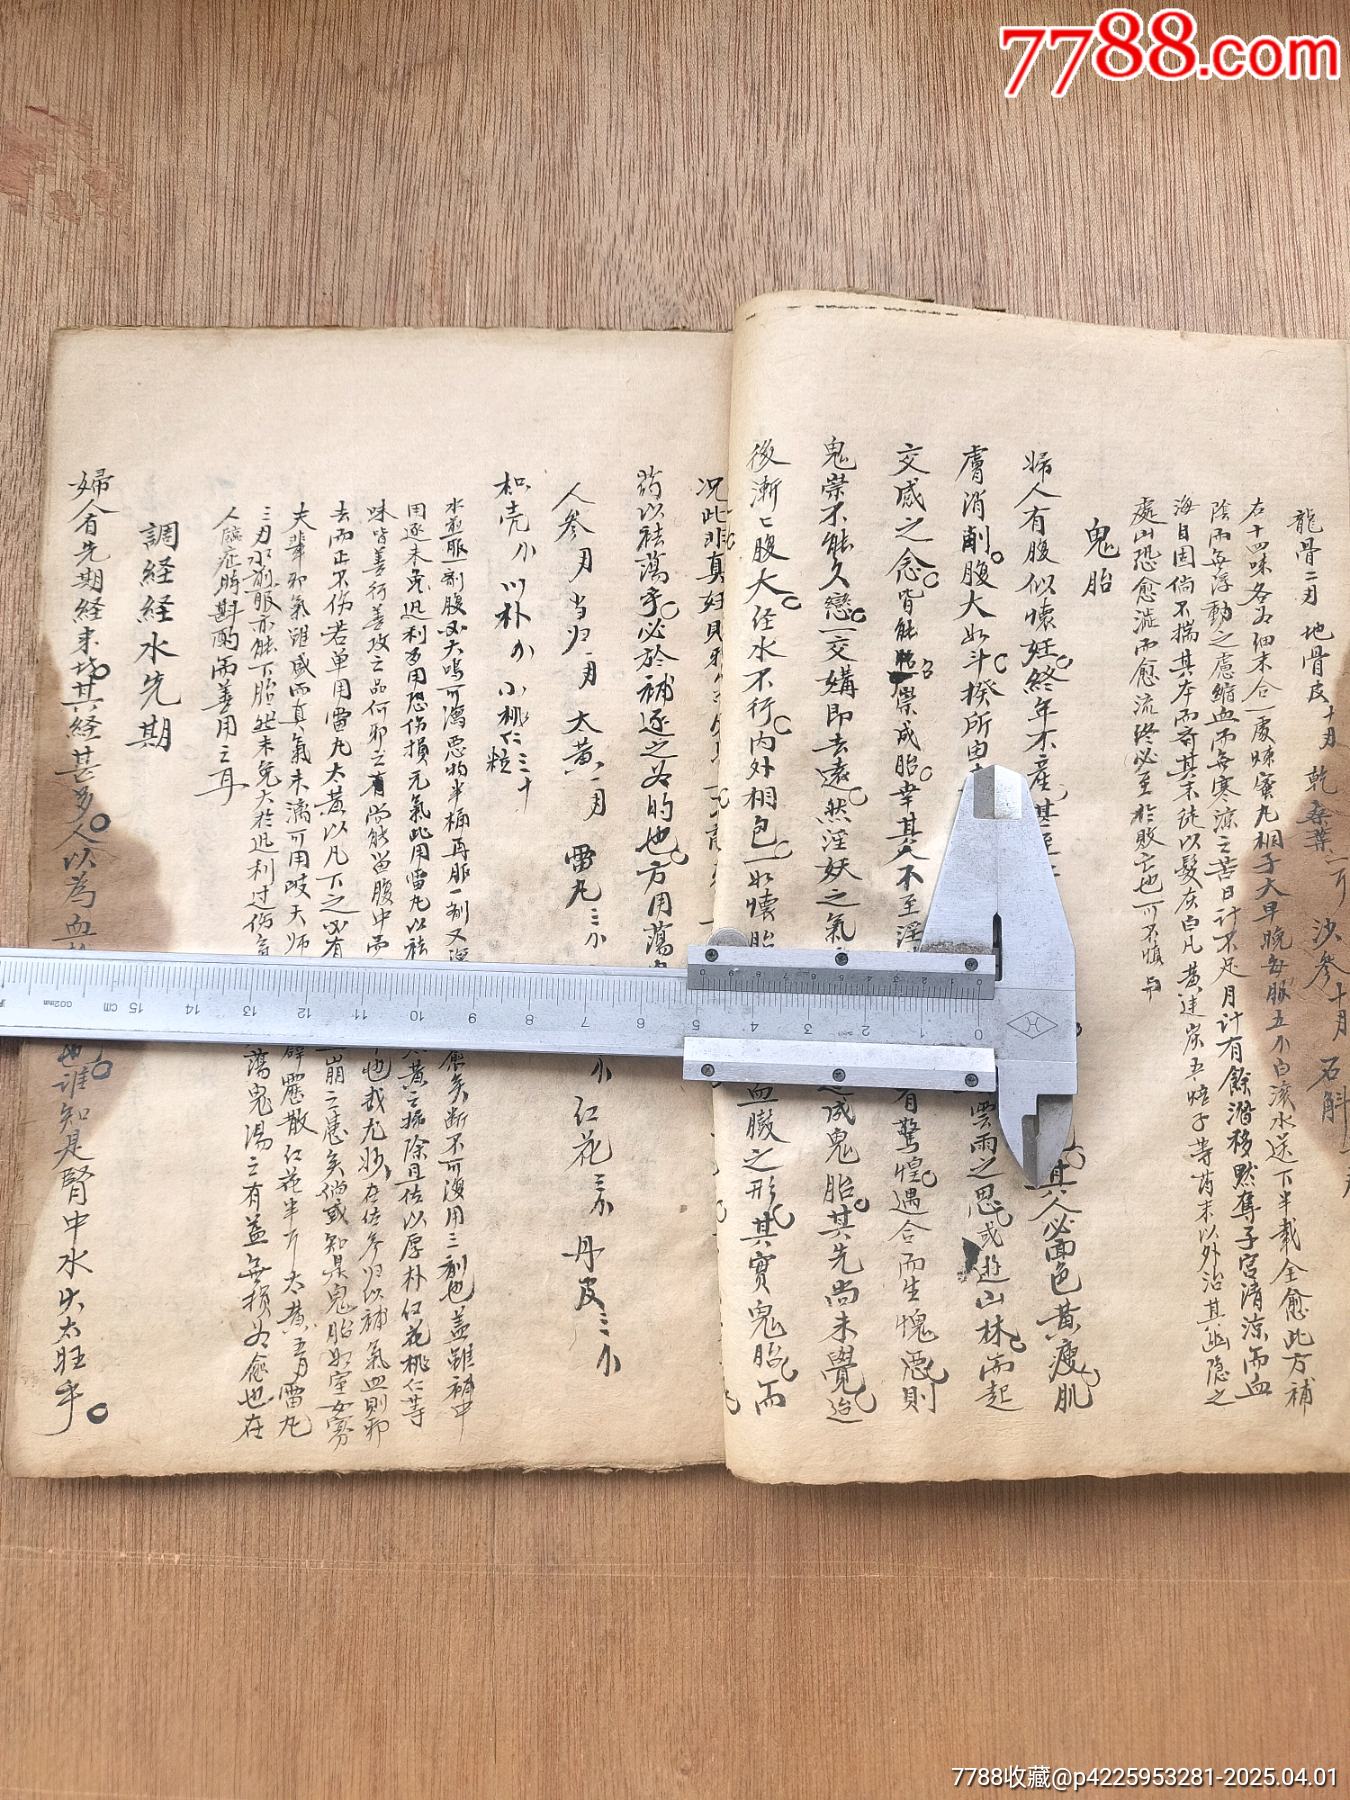 7788.com
龍骨二刃 地骨皮十刃 乾桑葉一斤 沙參十刃 石斛
右十四味各為細末合一處煉蜜丸桐子大早晚每服五小白滾水送下半載全愈此方補
陰而無浮動之慮縮血而無寒涼之苦日計不足月計有餘潛移默奪子宮清涼而血
海自固倘不揣其本而齊其末徒以髮灰白凡黃連炭五倍子等药末以外治其幽隐之
處山恐愈澁而愈流终必至於敗亡也可不慎
鬼胎
婦人有腹似懷妊終年不產甚至 其人必面色黃瘦肌
膚消削腹大如斗揆所由 雲雨之思或遊山林而起
交感之念皆能 祟成胎幸其人不至淫 有驚惶遇合而生愧惡則
鬼祟不能久戀一交媾即去遠然淫妖之氣 成鬼胎其先尚未覺迨
後漸〻腹大经水不行内外相包一如懷胎 血臌之形其實鬼胎而
况此非真妊
药以祛蕩乎必於補逐之為的也方用蕩
人參刃 当归一刃 大黃一刃 雷丸三小 小 红花三小 丹皮三小
枳壳小 川朴小 小桃仁三十粒
水煎服一剂腹必大鳴可瀉惡物半桶再服一剂又 愈矣断不可復用三剂也盖雖補中
用逐未免迅利多用恐伤損元氣此用雷丸以祛 大黃之掃除且佐以厚朴红花桃仁等
味皆善行善攻之品何邪之有尚能留腹中而 也哉尤妙在佐參归以補氣血則邪
去而正不伤若单用雷丸大黃以凡下之必有 崩之患矣倘或知是鬼胎如室女寡
夫輩邪氣雖盛而真氣未漓可用岐天师 霹靂散红花半斤大黃五刃雷丸
三刃水煎服亦能下胎然未免大於迅利过伤 蕩鬼湯之有益無損為愈也在
人臨症時斟酌而善用之耳
調経経水先期
婦人有先期経来者其経甚多人以為血 也谁知是腎中水火太旺乎
15 CM 0.02mm 14 13 12 11 10 9 8 7 6 5 4 3 2 1 0
7788收藏@p4225953281-2025.04.01